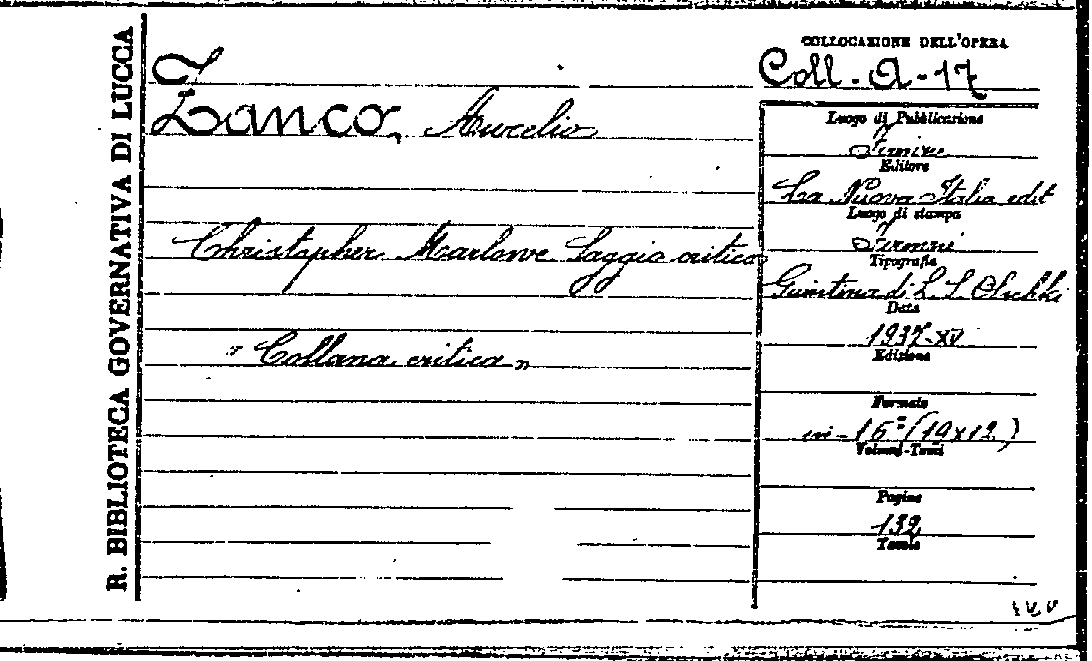 R. BIBLIOTECA GOVERNATIVA DI LUCCA
Zanco, Aurelio
Christopher Marlowe Saggio critico
"Collana critica"
COLLOCAZIONE DELL'OPERA
Coll - A - 17
Luogo di Pubblicazione
Firenze
Editore
La Nuova Italia edit
Luogo di stampa
Firenze
Tipografia
Giuntina di L. S. Olschki
Data
1937-XV
Edizione
Formato
in-16º (19x12)
Volumi-Tomi
Pagine
132
Tavole